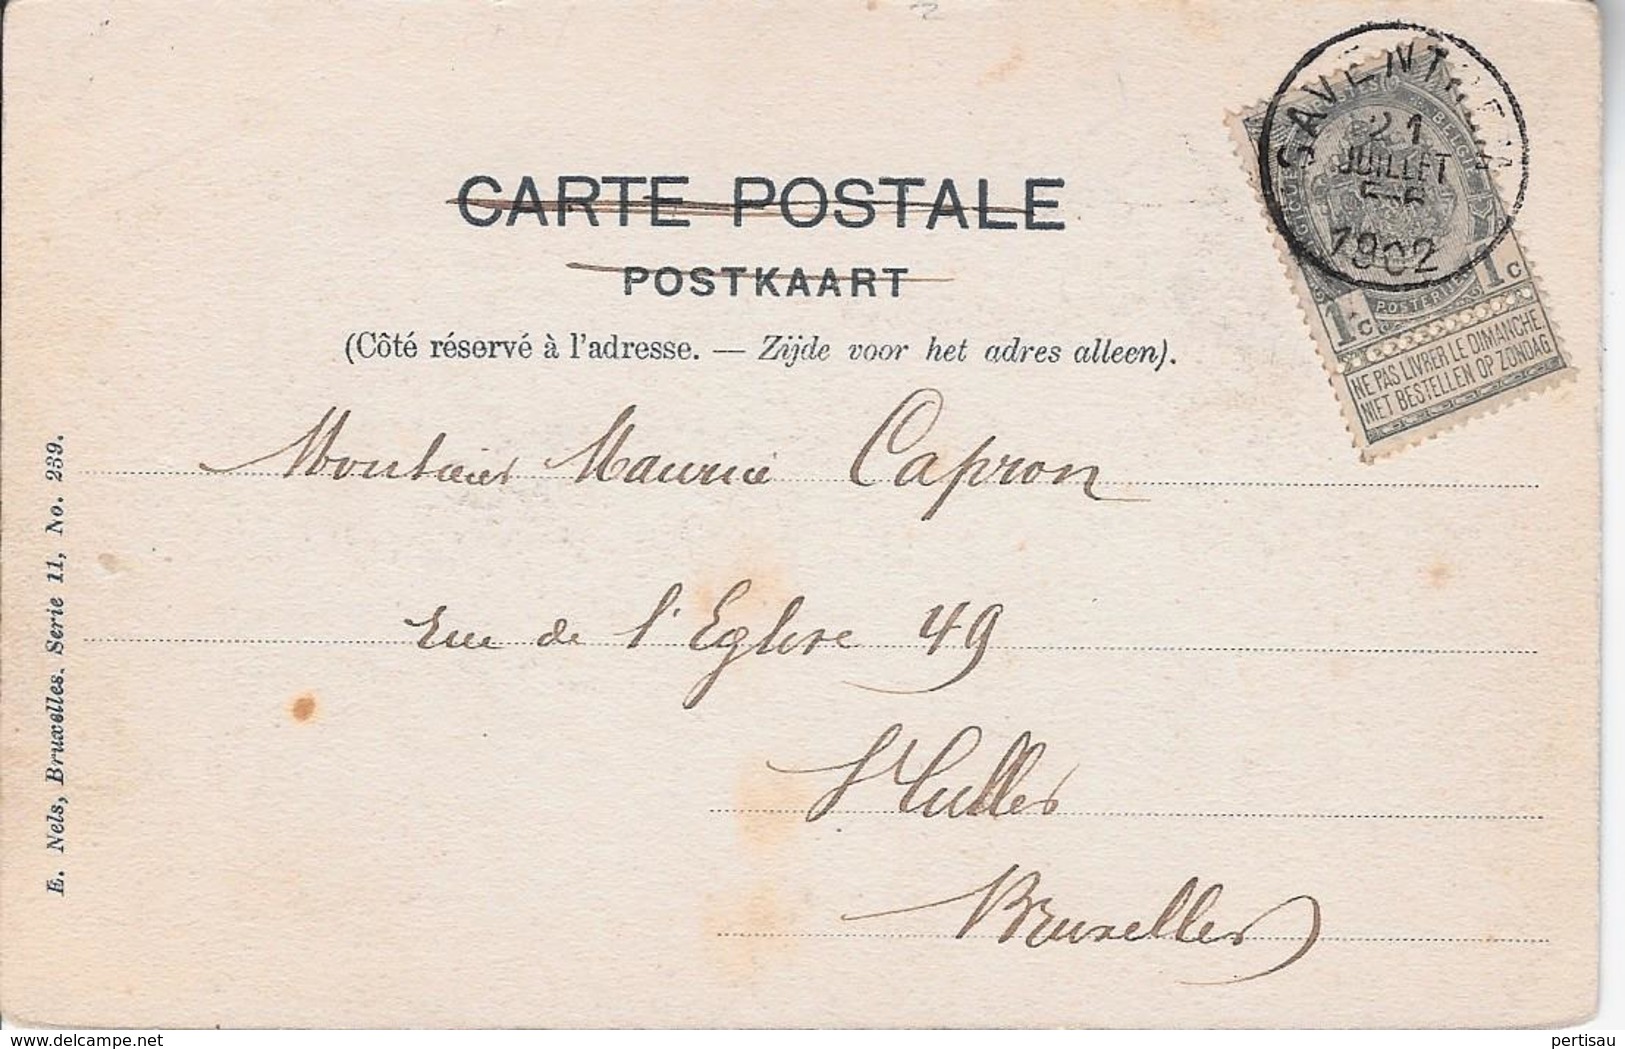 SAVENTHEM
21
JUILLET
1902
BELGI
1c 1c
NE PAS LIVRER LE DIMANCHE.
NIET BESTELLEN OP ZONDAG
CARTE POSTALE
POSTKAART
(Côté réservé à l'adresse. — Zijde voor het adres alleen).
Monsieur Maurice Capron
rue de l'Eglise 49
St Gilles
Bruxelles
E. Nels, Bruxelles. Serie 11, No. 239.
www.delcampe.net
pertisau